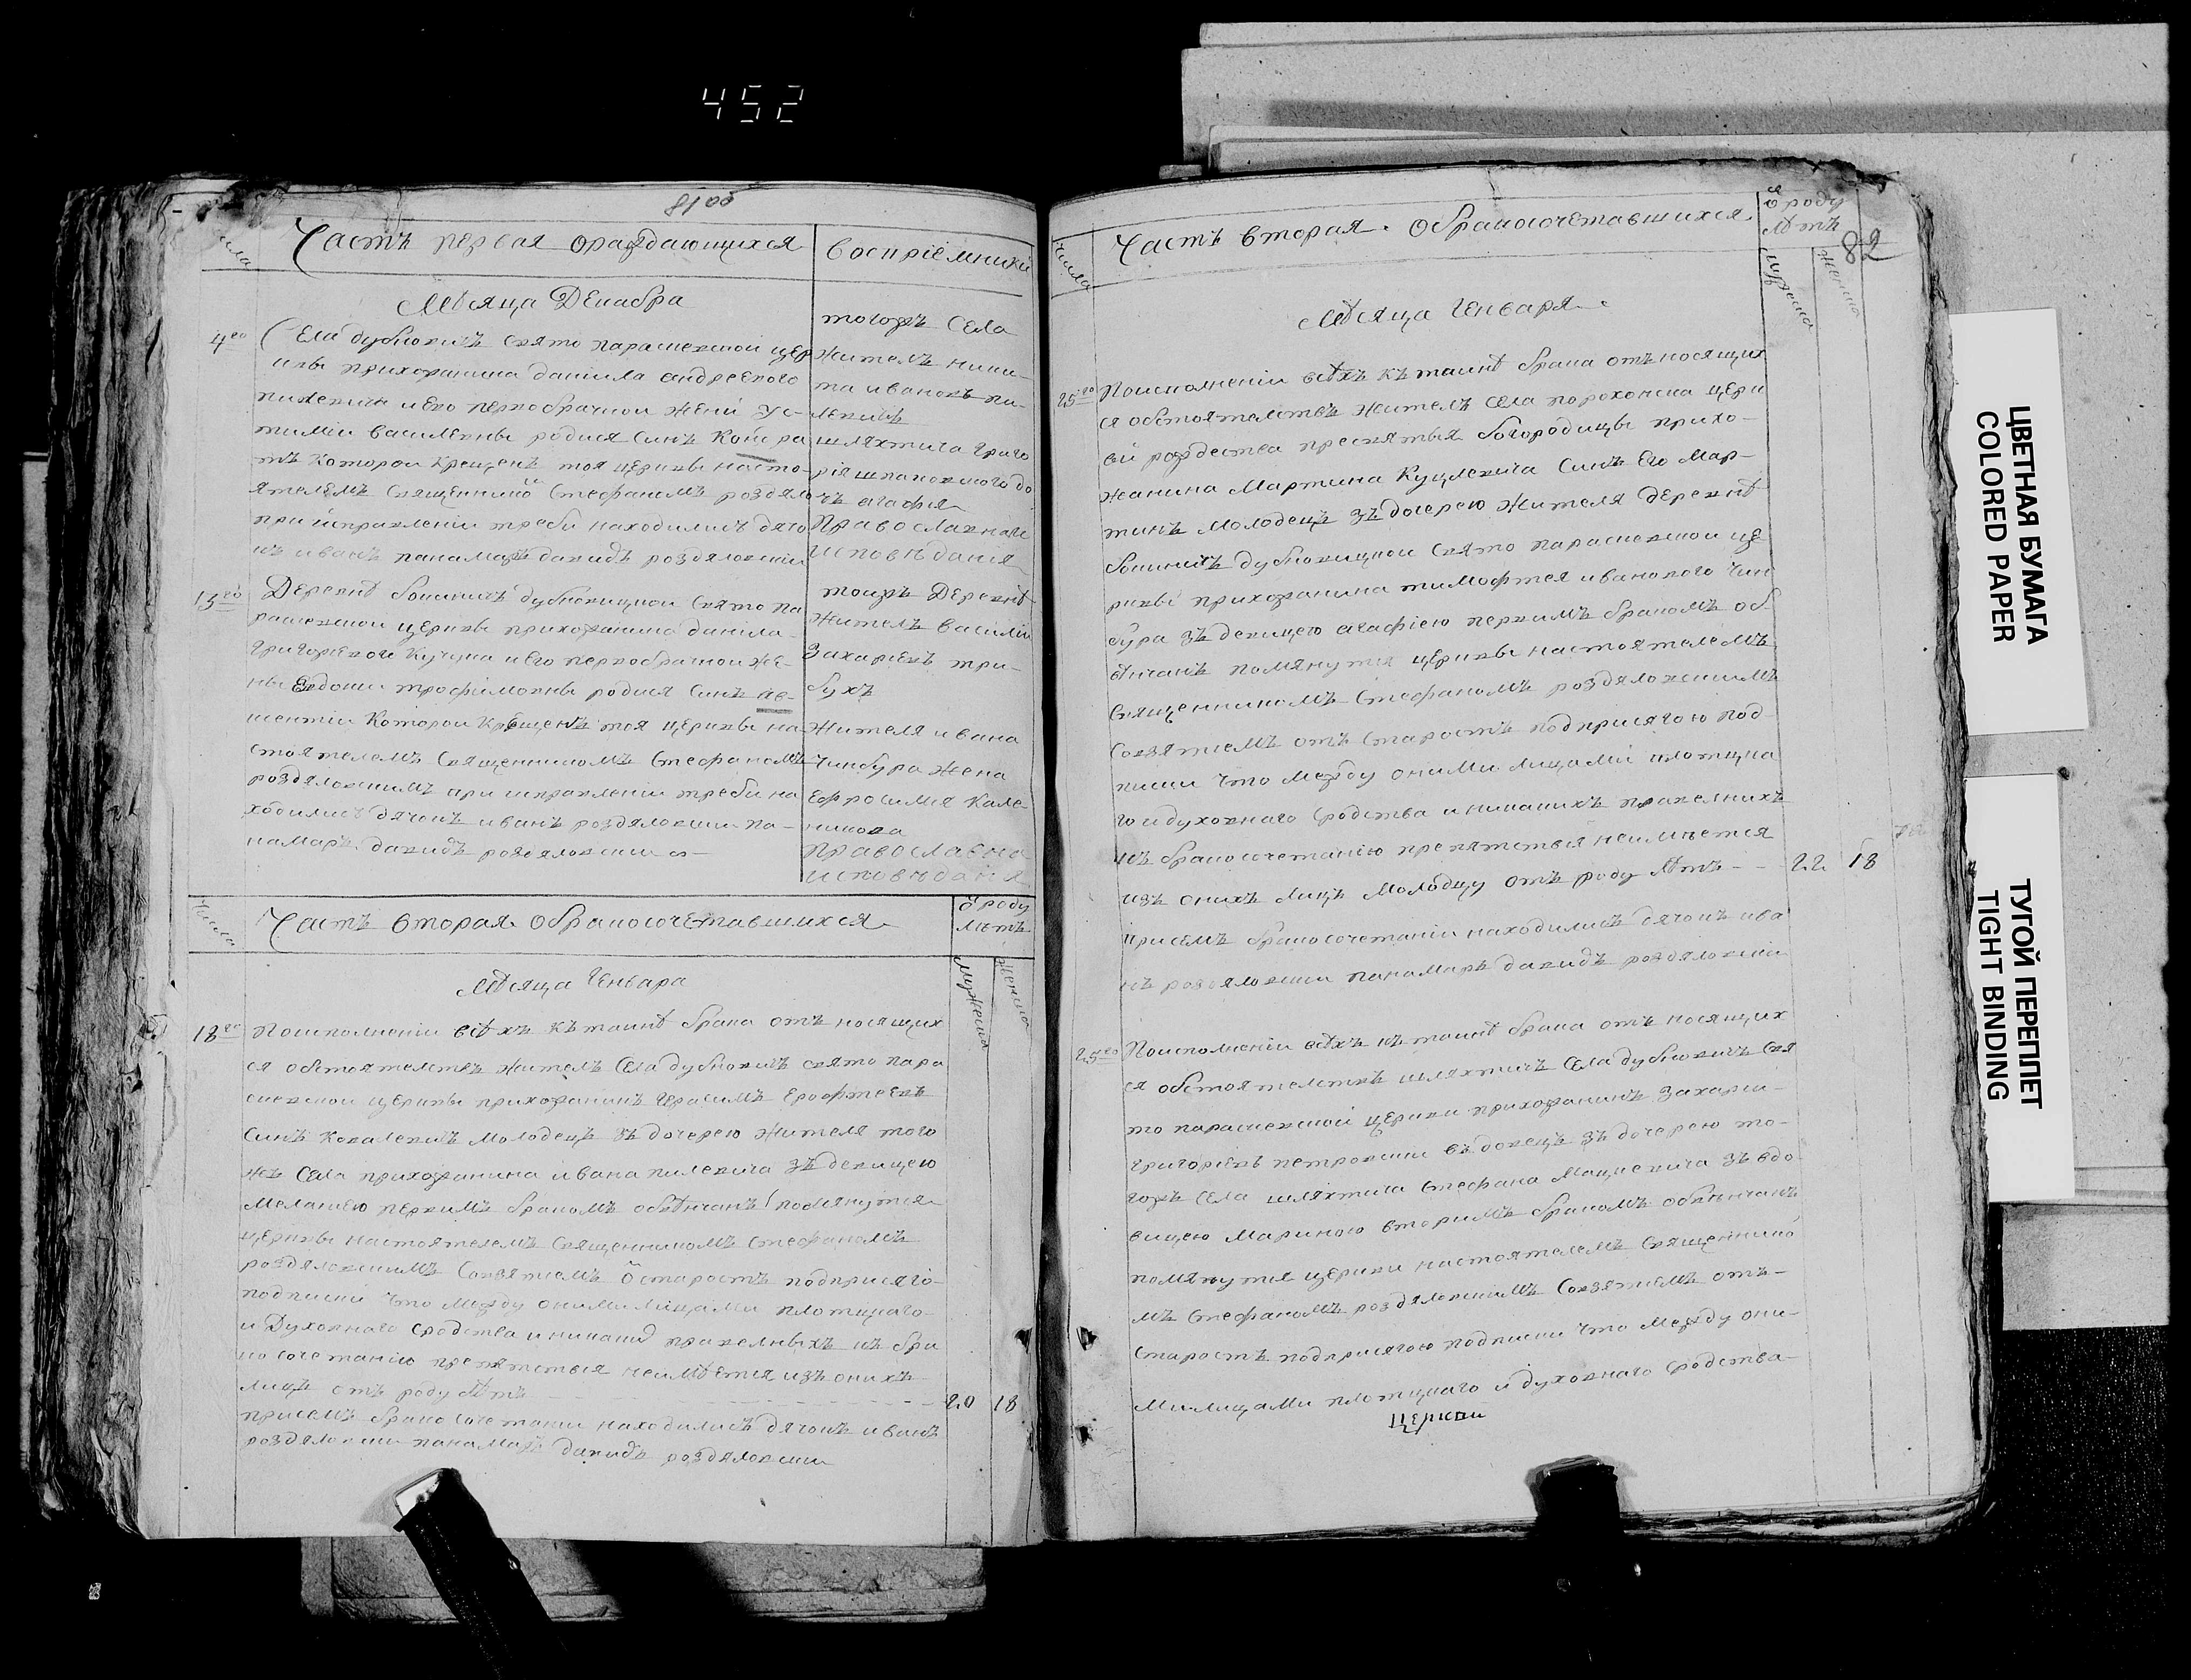 452
81об
Числа
Часть первая ораждающихся
восприемники
Мѣсяца Декабра
4го
Села дубновичъ свято параскевской цер
квы прихожанина даніила андреевого
пилевича и его первобрачной жены Ус-
тиміи василевны родися синъ Кон ра
тъ которой крещенъ тоя церквы насто-
ятелемъ священнико Стефаномъ роздяло
при исправленіи треби находилисъ дячо
къ иванъ панамаръ давидъ роздяловскіи
тогожъ Села
житель ники-
та ивановъ пи-
левичъ
шляхтича григо
рія шпаковского до
чъ агафія
Православнаго
Исповѣданія
13го
Деревнѣ боничъ дубновицкой свято па
раскевской церквы прихожанина даніла
григориевого Кучука и его первобрачной же-
ны Евдокии трофимовны родися синъ ав-
ксентіи которой крещенъ тоя церквы на
стоятелемъ священникомъ Стефаномъ
роздяловскимъ при исправленіи треби на
ходилисъ дячокъ иванъ роздяловскии па-
намаръ давидъ роздяловскии
тоижъ Деревнѣ
житель василіи
Захариевъ три-
бухъ
жителя ивана
Чинбура жена
Ефросимія Кале-
никова
Православна
исповѣданія
Числа
Часть вторая обракосочетавшихся
ѿ роду
лѣтъ
мужеска
женска
Мѣсяца Генвара
18го
Поисполненіи всѣхъ къ таинѣ брака отъ носящих
ся обстоятелствъ житель Села дубновичъ свято пара
скевской церквы прихожанинъ Герасимъ Ерофѣевъ
синъ Ковалевичъ молодецъ зъ дочерею жителя того
жъ Села прихожанина ивана пилевича зъ девицею
Меланиею первимъ бракомъ обвѣнчанъ помянутія
церквы настоятелемъ священникомъ Стефаномъ
роздяловскимъ Совзятиемъ ѿ старостъ подприсяго-
подписки что между оними лицами плотцкаго
и Духовнаго сродства и никаких правелныхъ къ бра
ко сочетанію препятствія неимѣется изъ онихъ
лицъ отъ роду лѣтъ
20 18
присемъ бракосочетании находилисъ дячокъ иванъ
роздяловскии панамаръ давидъ роздяловскии
Числа
Часть вторая обракосочетавшихся
ѿ роду
лѣтъ
82
мужеска
женска
Мѣсяца Генваря
25го
Поисполненіи всѣхъ къ таинѣ брака отъ носящих
ся обстоятелствъ житель Села порохонска церк
ви рождества пресвятыя богородицы прихо-
жанина Мартина Куцлевича Синъ Его Мар-
тинъ Молодецъ зъ дочерею жителя деревнѣ
боничъ дубновицкой свято параскевской це
рквы прихожанина тимофѣея иванового Чин
бура зъ девицею агафіею первимъ бракомъ об-
вѣнчанъ помянутія церквы настоятелемъ
священникомъ Стефаномъ роздяловскимъ
Совзятиемъ отъ старостъ подприсягою под-
писки что между оними лицами плотцка
го и духовнаго сродства и никакихъ правелнихъ
къ бракосочетанію препятствія неимѣется
изъ онихъ лицъ Молодцу отъ роду лѣтъ
22 18
присемъ бракосочетаніи находилисъ дячокъ ива
нъ роздяловскии панамаръ давидъ роздяловскии
25го
Поисполненіи всѣхъ къ таинѣ брака отъ носящих
ся обстоятелствъ шляхтичъ Села дубновичъ свя
то параскевской церкви прихожанинъ Захарии
григориевъ петровскии въдовецъ зъ дочерею то-
гожъ Села шляхтича Стефана Мацкевича зъ вдо
вицею Мариною вторимъ бракомъ обвѣнчанъ
помянутія церкви настоятелемъ священнико
мъ Стефаномъ роздяловскимъ Совзятиемъ отъ
старостъ подприсягою подписки что между они-
ми лицами плотцкаго и духовнаго сродства
Церкви
ЦВЕТНАЯ БУМАГА
COLORED PAPER
ТУГОЙ ПЕРЕПЛЕТ
TIGHT BINDING